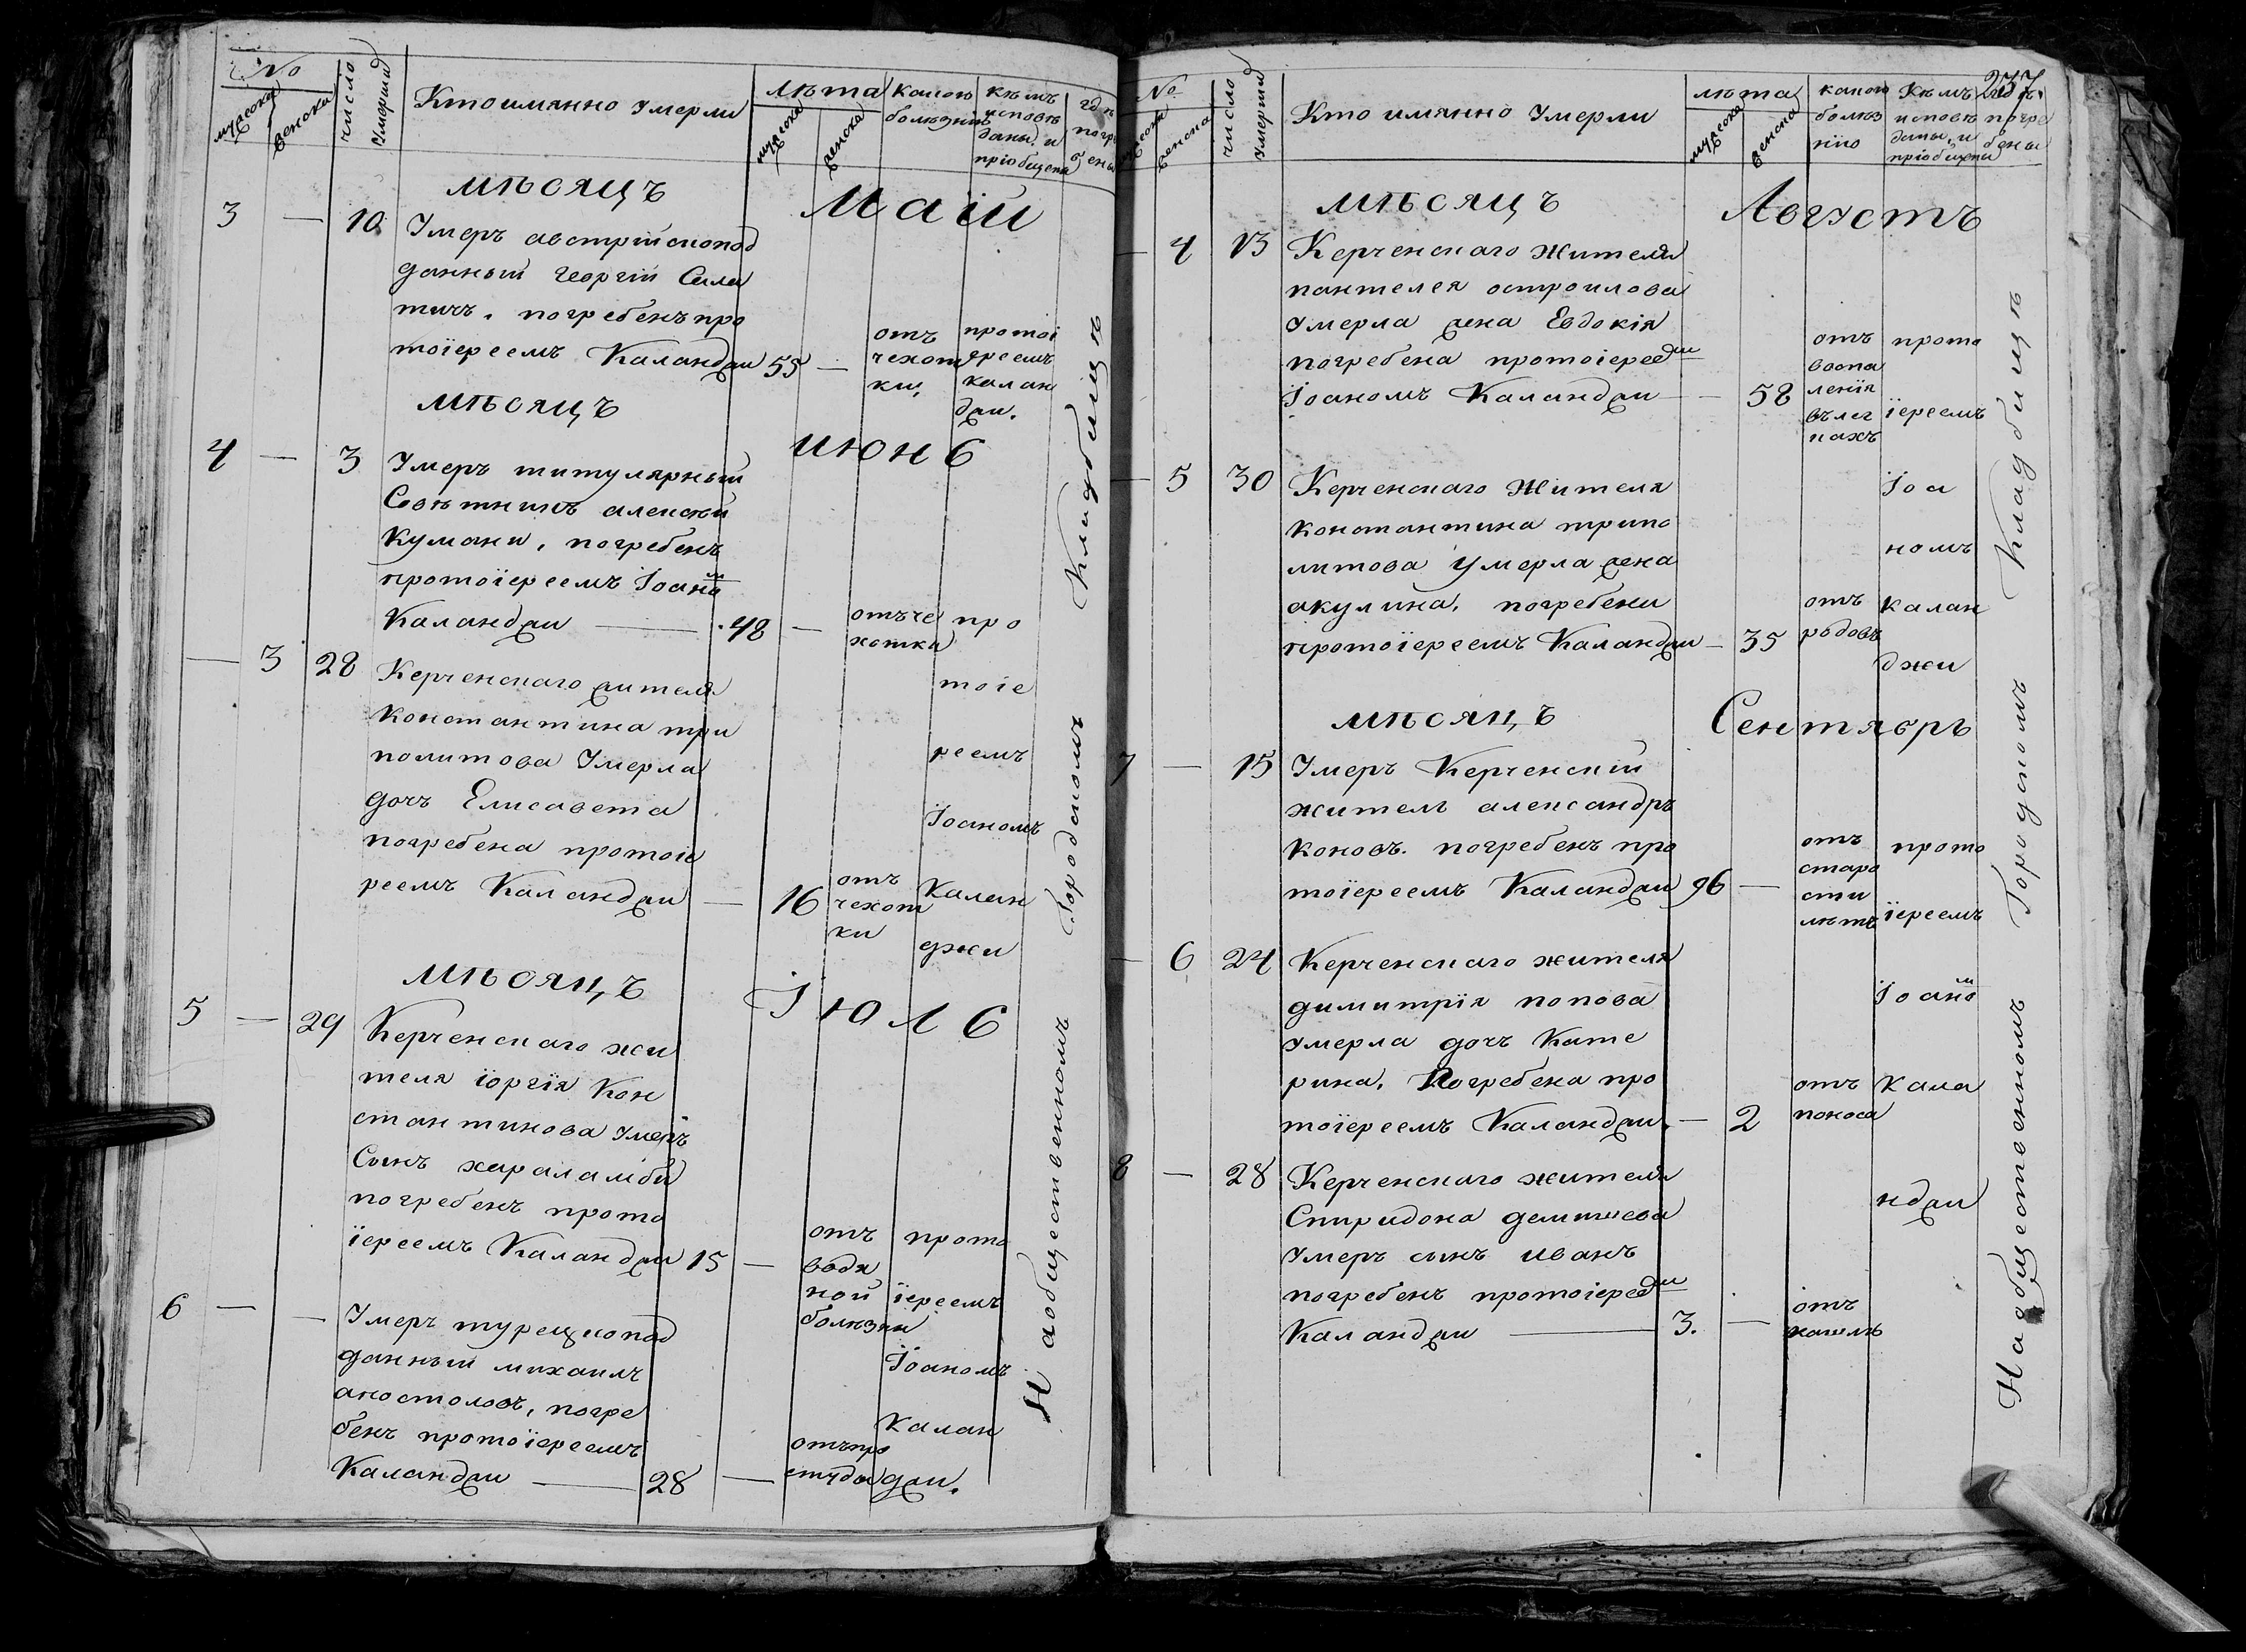 №
мужска
женска
число
Умерши
Кто имянно Умерли
лѣта
мужска
женска
какою
болѣзнію
Кѣмъ
исповѣ
даны и
пріобщены
гдѣ
погре
бены
мѣсяцъ Маій
3 — 10. Умеръ австрійскопод
данный Георгій Сила
тичъ. погребенъ про
тоіереемъ Каланджи 55 —
отъ
чехот
ки,
протоі
ереемъ
калан
джи.
мѣсяцъ июнь
4 — 3 Умеръ титулярный
Совѣтникъ алексѣй
Кумани, погребенъ
протоіереемъ Іоаномъ
Каланджи — 48 —
отъ че
хотки
про
тоіе
реемъ
Іоаномъ
Калан
джи
— 3 28 Керченскаго жителя
Константина три
политова Умерла
дочь Елисавета
погребена протоіе
реемъ Каланджи — 16
отъ
чехот
ки
мѣсяцъ Іюль
5 — 29 Керченскаго жи
теля іоргія Кон
стантинова Умеръ
Сынъ харалампій
погребенъ прото
іереемъ Каланджи 15 —
отъ
водя
ной
болѣзни
прото
іереемъ
Іоаномъ
Калан
джи.
6 — — Умеръ турецкопод
данный михаилъ
апостоловъ, погре
бенъ протоіереемъ
Каланджи — 28 —
отъ про
студы
На общественномъ Городскомъ Кладбищѣ
237
№
мужска
женска
число
Умерши
Кто имянно Умерли
лѣта
мужска
женска
какою
болѣз
нію
Кѣмъ
исповѣ
даны и
пріобщены
гдѣ
погре
бены
мѣсяцъ Августъ
— 4 13 Керченскаго Жителя
пантелея
Умерла жена Евдокія
погребена протоіереемъ
Іоаномъ Каланджи — 58
отъ
воспа
ленія
въ лег
кахъ
прото
іереемъ
Іоа
номъ
калан
джи
— 5 30 Керченскаго Жителя
константина трипо
литова умерла жена
акулина, погребени
протоіереемъ Каланджи — 35
отъ
родовъ
мѣсяцъ Сентябрь
7 — 15 Умеръ Керченскій
житель александръ
коновъ. погребенъ про
тоіереемъ Каланджи 96 —
отъ
старо
сти
лѣтъ
прото
іереемъ
Іоаномъ
Кала
нджи
— 6 24 Керченскаго жителя
димитрія попова
умерла дочь Кате
рина, Погребена про
тоіереемъ Каланджи. — 2
отъ
поноса
8 — 28 Керченскаго жителя
Спиридона
Умеръ сынъ иванъ
погребенъ протоіереемъ
Каланджи — 3. —
отъ
кашель
На общественномъ Городскомъ Кладбищѣ